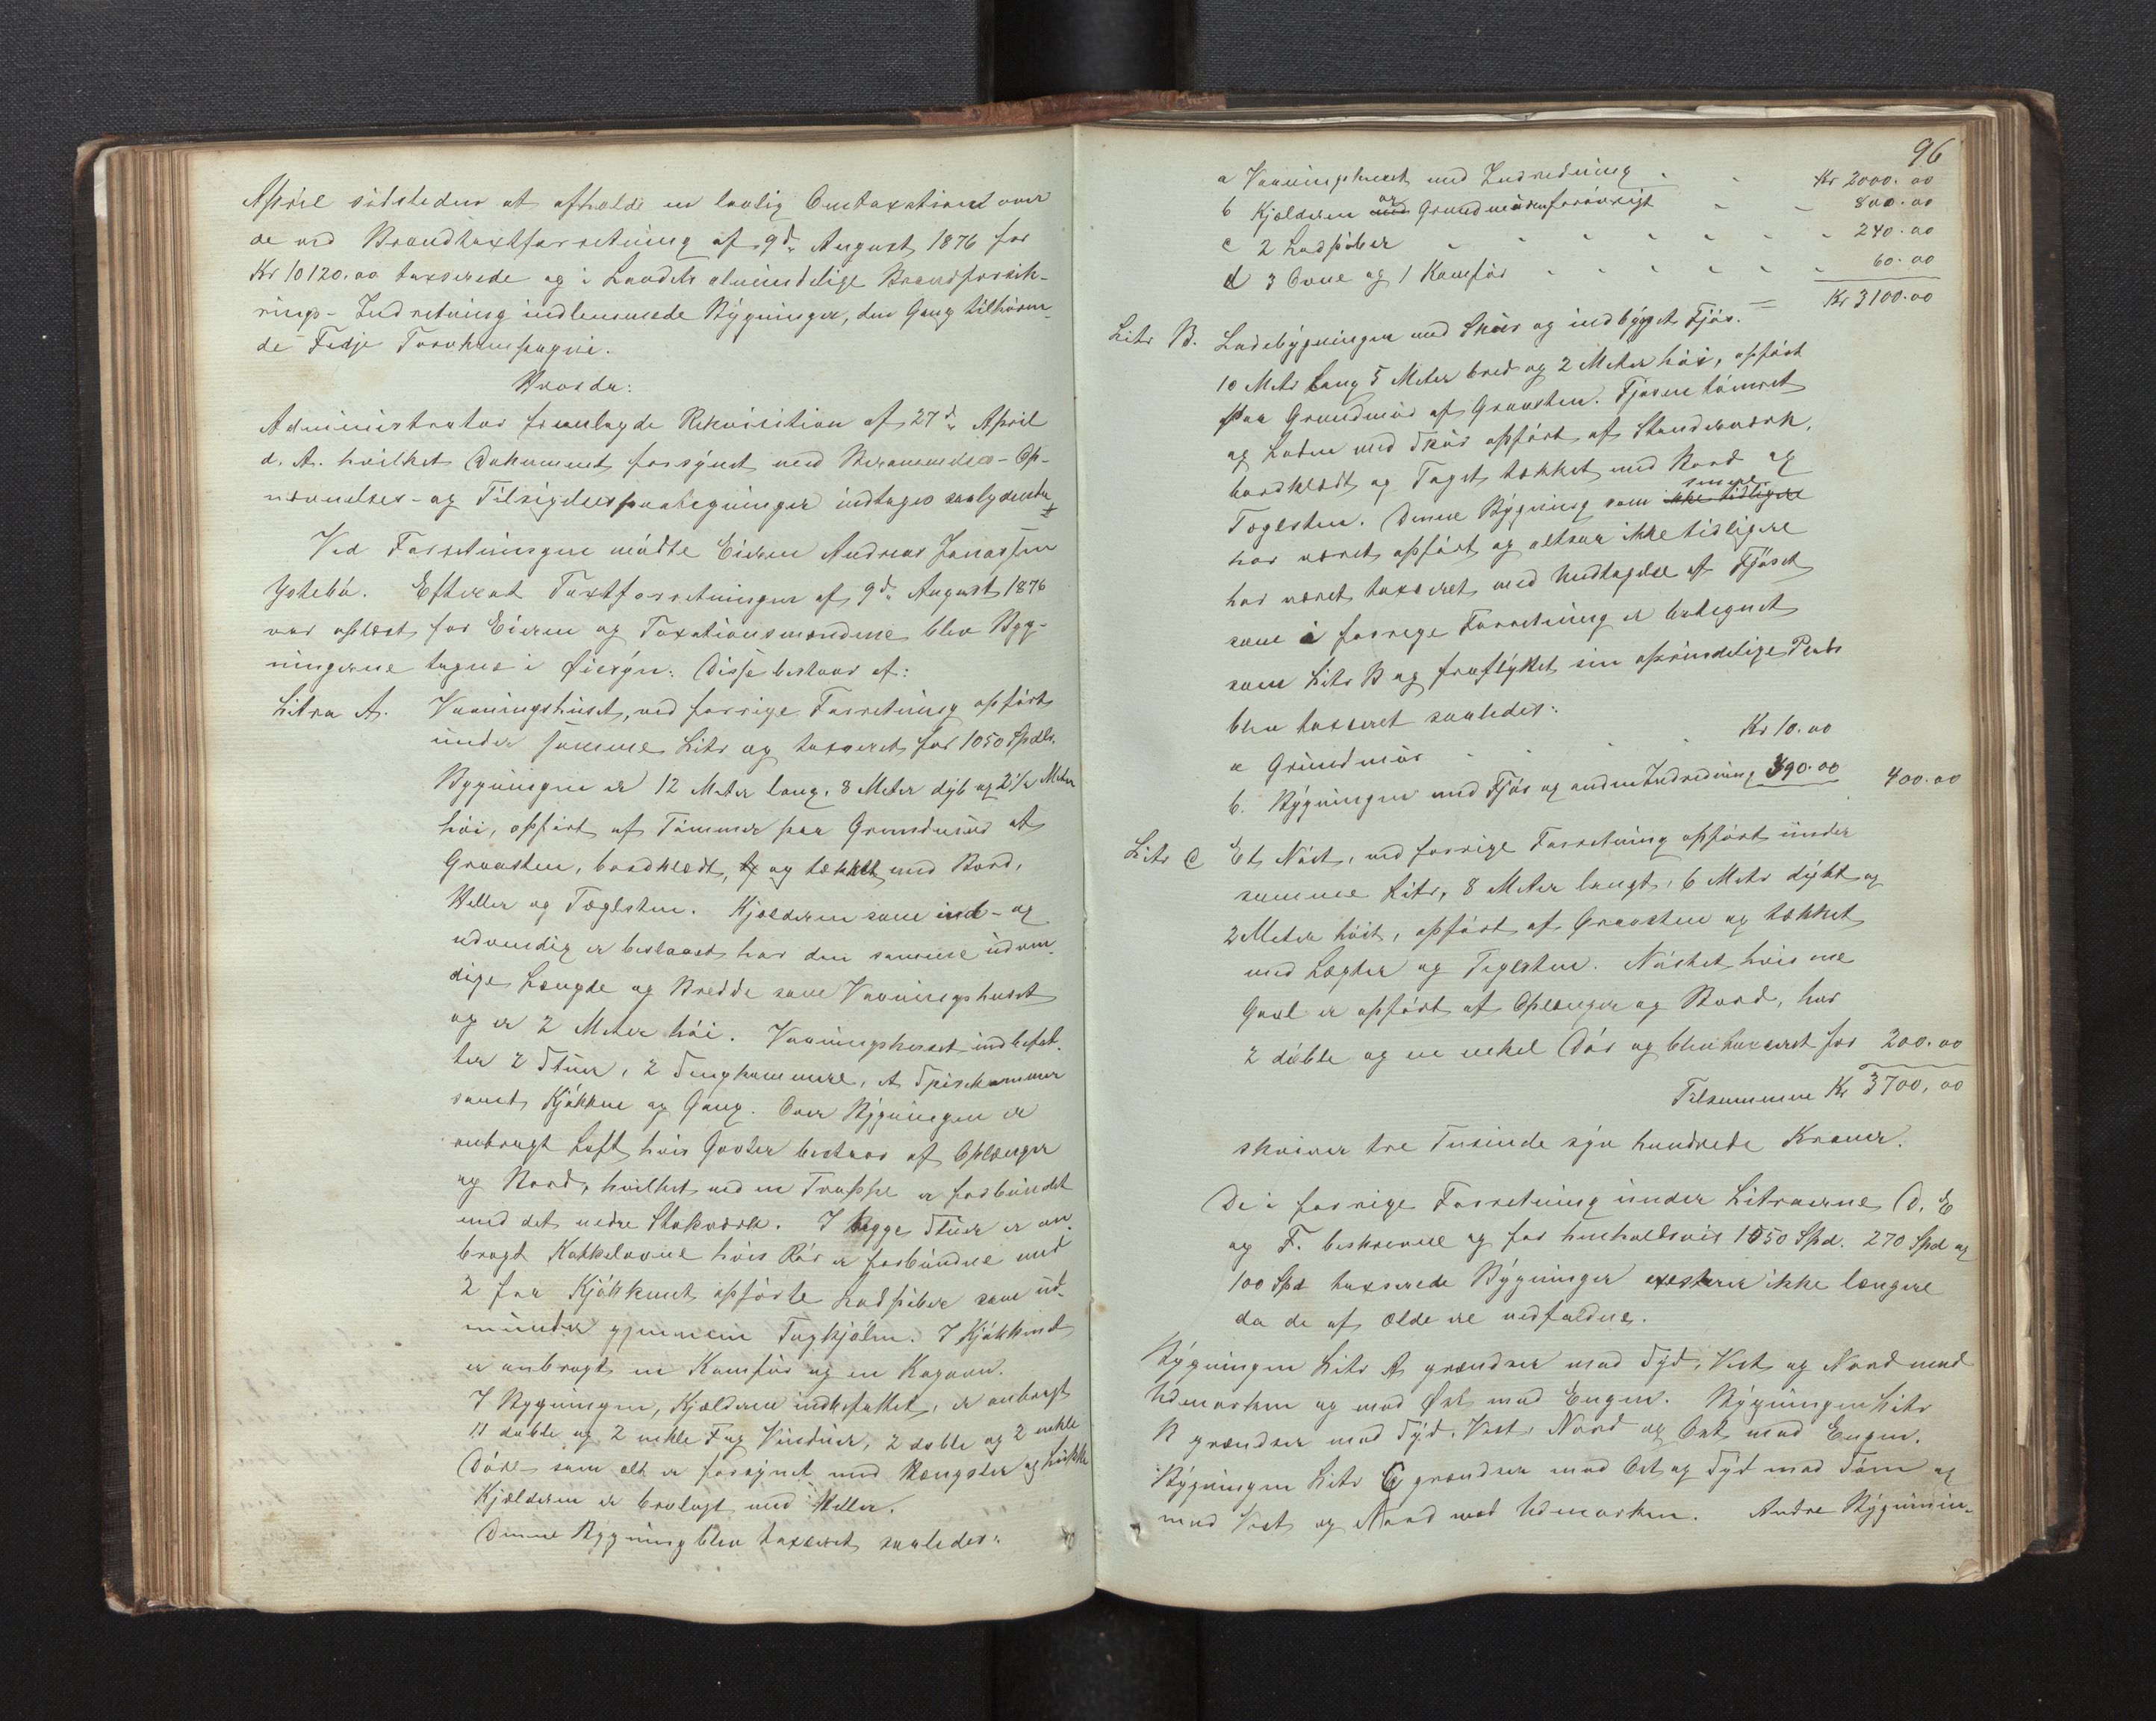 April sidstleden at afholde en lovlig Omtaxation over
de ved Brandtaxtforretning af 9de August 1876 for
Kr 10120.00 taxerede og i Landets almindelige Brandforsik-
rings-Indretning indlemmede Bygninger, den Gang tilhøren-
de Fedje Torvkompagni.
Hvorda:
Administrator fremlagde Rekvisition af 27de April
d. A. hvilket Dokument forsynet med Berammelses- Op-
nævnelses- og Tilsigelsespaategninger indtages saalydende
Ved Forretningen mødte Eieren Andreas Jonassen
Ystebø. Efterat Taxtforretningen af 9de August 1876
var oplæst for Eieren og Taxationsmændene blev Byg-
ningerne tagne i Øiesyn. Disse bestaar af:
Litra A. Vaaningshuset, ved forrige Forretning opført
under samme Litr og taxeret for 1050 Spdlr.
Bygningen er 12 Meter lang, 8 Meter dyb og 2½ Meter
høi, opført af Tømmer paa Grundmur af
Graasten, bordklædt, og tækket med Bord,
Heller og Taglsten. Kjælderen som ind- og
udvendig er beslaaet har den samme udven-
dige Længde og Bredde som Vaaningshuset
og er 2 Meter høi. Vaaningshuset indbefat-
ter 2 Stuer, 2 Sengkammere, et Spiskammer
samt Kjøkken og Gang. Over Bygningen er
anbragt Loft hvis Gavler bestaar af Oplænger
og Bord, hvilket ved en Trappe er forbundet
med det nedre Stokværk. I begge Stuer er an-
bragt Kakkelovne hvis Rør er forbundne med
2 fra Kjøkkenet opførte Ladpiber som ud-
munder gjennem Tagkjølen. I Kjøkkenet
er anbragt en Komfur og en Kogovn.
I Bygningen, Kjælderen indbefattet, er anbragt
11 doble og 2 enkle Fag Vinduer, 2 doble og 2 enkle
Døre som alt er forsynet med Hængsler og Lukke
Kjælderen er brolagt med Heller.
Denne Bygning blev taxeret saaledes:
96
a Vaaningshuset med Indredning Kr 2000.00
b Kjælderen med og Grundmuren forøvrigt 800.00
c 2 Ladpiber 240.00
d 3 Ovne og 1 Komfur 60.00
= Kr 3100.00
Litr B. Ladebygningen med Skur og indbygget Fjøs.
10 Meter lang 5 Meter bred og 2 Meter høi, opført
paa Grundmur af Graasten. Fjøsen tømret
og Laden med Skur opført af Stenderværk,
bordklædt og Taget tækket med Bord og
Taglsten. Denne Bygning som senere ikke tidligere
har været opført og altsaa ikke tidligere
har været taxeret med Undtagelse af Fjøset
som i forrige Forretning er betegnet
som Litr B og fraflyttet sin oprindelige Plads
blev taxeret saaledes:
a Grundmur Kr 10.00
b. Bygningen med Fjøs og anden Indredning 390.00 400.00
Litr C Et Nøst, ved forrige Forretning opført under
samme Litr, 8 Meter langt, 6 Meter dybt og
2 Meter høit, opført af Graasten og tækket
med Lægter og Teglsten. Nøstet hvis ene
Gavl er opført af Oplænger og Bord, har
2 doble og en enkel Dør og blev taxeret for 200.00
Tilsammen Kr 3700,00
skriver tre Tusinde syv hundrede Kroner.
De i forrige Forretning under Litraerne D, E
og F. beskrevne og for henholdsvis 1050 Spd. 270 Spd og
100 Spd taxerede Bygninger existerer ikke længere
da de af Ælde ere nedfaldne.
Bygningen Litr A grændser mod Syd, Vest og Nord mod
Udmarken og mod Øst mod Engen. Bygningen Litr
B grændser mod Syd, Vest, Nord og Ost mod Engen.
Bygningen Litr C grændser mod Ost og Syd mod Søen og
mod Vest og Nord mod Udmarken. Andre Bygnin-